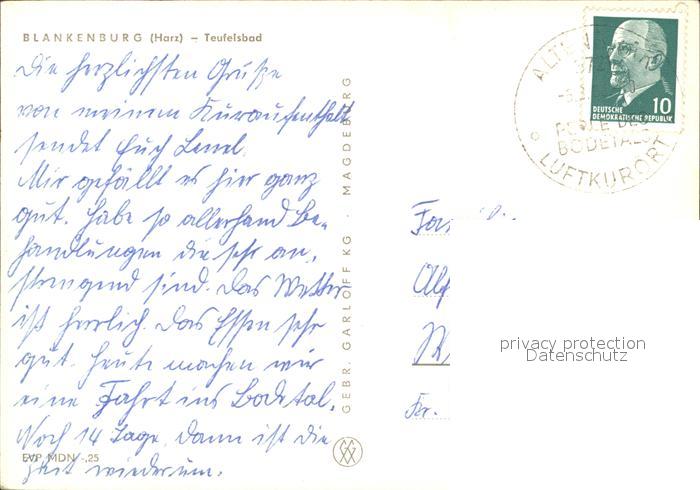 BLANKENBURG (Harz) – Teufelsbad
Die herzlichsten Grüße
von meinem Kuraufenthalt
sendet Euch
Mir gefällt es hier ganz
gut. Habe so allerhand Be-
handlungen die sehr an-
strengend sind. Das Wetter
ist herrlich. Das Essen sehr
gut. Heute machen wir
eine Fahrt ins Bodetal.
Noch 14 Tage, dann ist die
Zeit wiederum.
EVP MDN -,25
GEBR. GARLOFF KG · MAGDEBURG
DEUTSCHE
DEMOKRATISCHE REPUBLIK
10
PERLE DES
BODETALS
LUFTKURORT
Kr.
privacy protection
Datenschutz